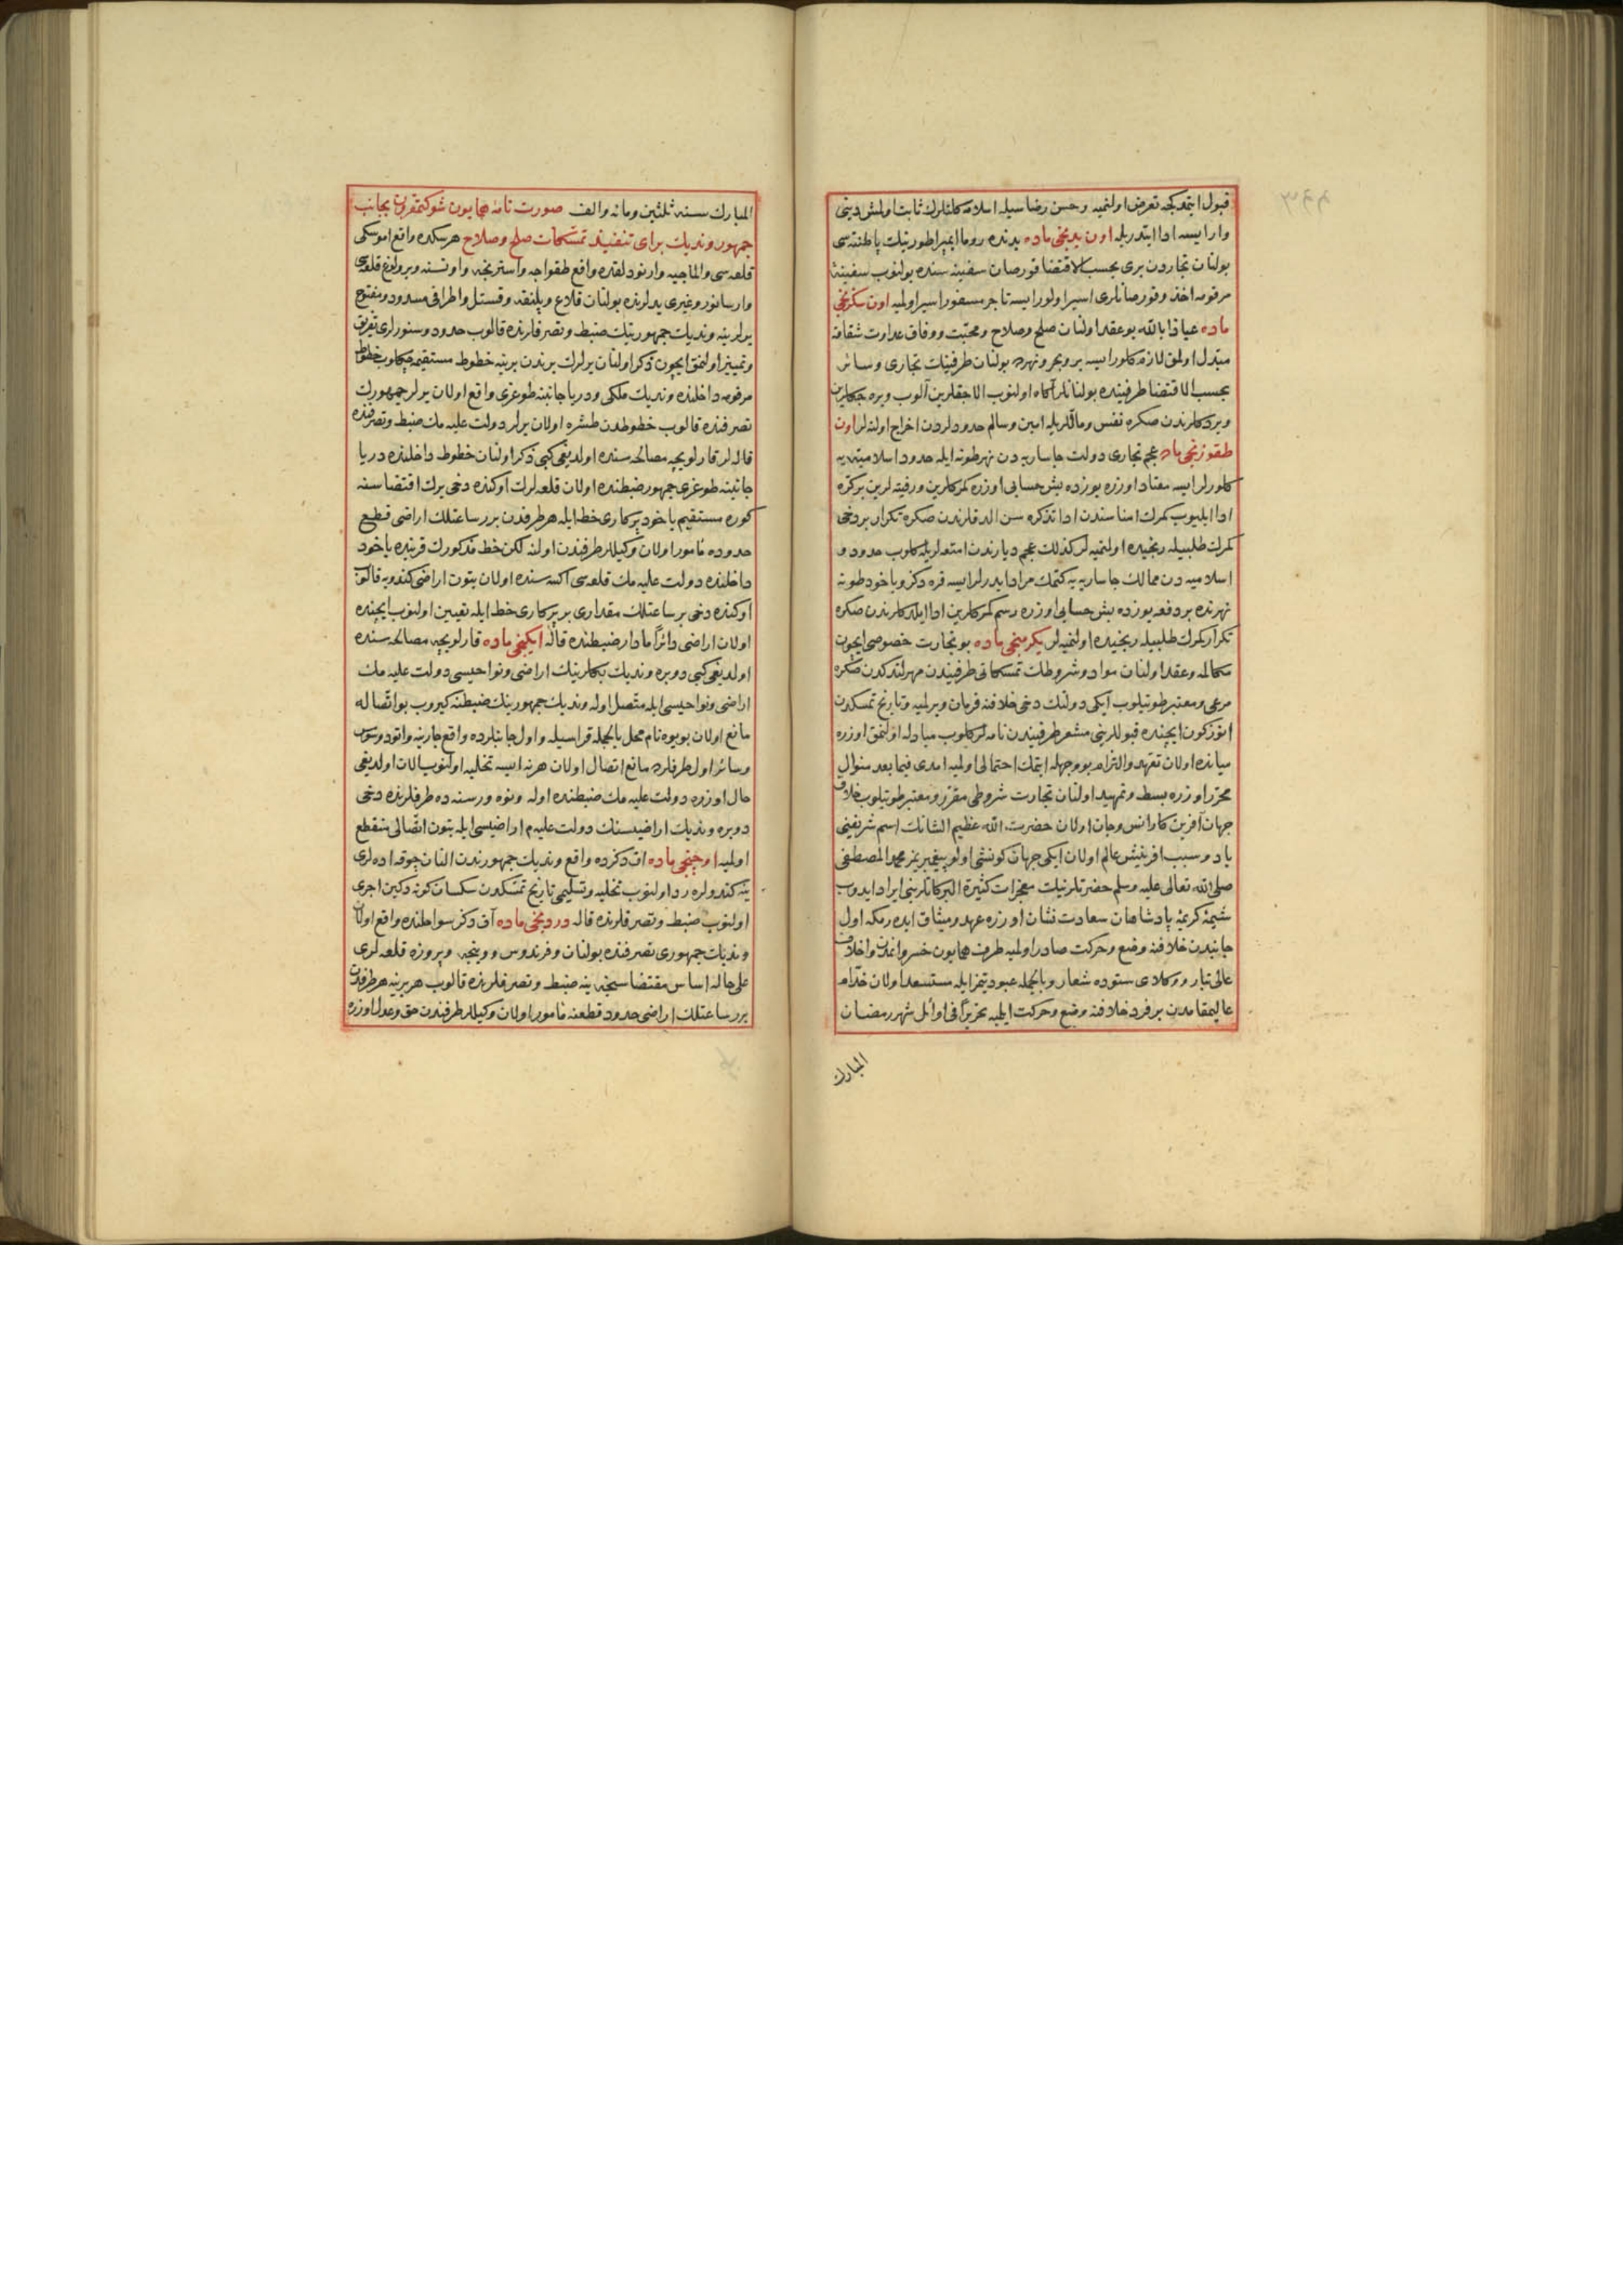 قبول ایتمدکجه تعرض اولنمیه و حسن رضا سیله اسلامه کلنلرك ثابت اولمش دینی
وار ایسه ادا ایتدریله اون یدنجی ماده یدنده روما ایمپراطورینك پاطنته سی
بولنان تجاردن بری بحسب الاقتضا قورصان سفینه سنده بولنوب سفینهٔ
مرقومه اخذ و قورصانلری اسیر اولور ایسه تاجر مسفور اسیر اولمیه اون سکزنجی
ماده عیاذا بالله بو عقد اولنان صلح و صلاح و محبت و وفاق عداوت شقاقه
مبدل اولمق لازم کلور ایسه بر و بحر و نهرده بولنان طرفینك تجاری و سائر
بحسب الاقتضا طرفینده بولنانلر آکاه اولنوب الاجقلرین آلوب ویره جکلرین
ویردکلرندن صکره نفس و ماللریله امین و سالم حدودلردن اخراج اولنه لر اون
طقوزنجی ماده عجم تجاری دولت جاساریه دن نهر طونه ایله حدود اسلامیه یه
کلورلر ایسه معتاد اوزره یوزده بش حسابی اوزره کمرکلرین و رفتیه لرین بر کره
ادا ایلیوب کمرك امناسندن ادا تذکره سن الدقلرندن صکره تکرار بر دخی
کمرك طلبیله رنجیده اولنمیه لر کذلك عجم دیارندن امتعه لریله کلوب حدود
اسلامیه دن ممالك جاساریه یه کتمك مراد ایدرلر ایسه قره دکز و یاخود طونه
نهرنده بر دفعه یوزده بش حسابی اوزره رسم کمرکلرین ادا ایلدکلرندن صکره
تکرار کمرك طلبیله رنجیده اولنمیه لر یکرمنجی ماده بو تجارت خصوصی ایچون
مکالمه و عقد اولنان مواد و شروطك تمسکاتی طرفیندن مهرلندکدن صکره
مرعی و معتبر طوتیلوب ایکی دولتك دخی خلافنه فرمان ویرلمیه و تاریخ تمسکدن
اوتوز کون ایچنده قبوللرینی مشعر طرفیندن نامه لر کلوب مبادله اولنمق اوزره
میانده اولان تعهد و التزام بو وجهله ایتمك احتمالی اولمیه امدی فیما بعد منوال
محرر اوزره بسط و تمهید اولنان تجارت شروطی مقرر و معتبر طوتیلوب خلاف
جهان آفرین کار انس و جان اولان حضرت الله عظیم الشانك اسم شریفنی
یاد و سبب افرینش عالم اولان ایکی جهان کونشی اولو پیغمبریمز محمد المصطفی
صلی الله تعالی علیه وسلم حضرتلرینك معجزات کثیرة البرکاتلرینی ایراد ایدوب
شیمهٔ کریمهٔ پادشاهان سعادت نشان اوزره عهد و میثاق ایده رمکه اول
جانبدن خلافنه وضع و حرکت صادر اولمیه طرف همایون خسروانه مدن و اخلاف
عالی تبار و وکلای ستوده شعار و بالجمله عبودیتمز ایله مستسعد اولان خدام
عالیمقامدن بر فرد خلافنه وضع و حرکت ایلمیه تحریرا فی اوائل شهر رمضان
المبارك
المبارك سنه ثلثین و مائه و الف صورت نامه همایون شوکتمقرون بجانب
جمهور وندیك برای تنفیذ تمسکات صلح و صلاح هرسکده واقع اموسکی
قلعه سی و الماجیه و ارنودلقده واقع طقواجه و استرنجه و اونسنه و پرولوغ قلعه سی
یرلرینه وندیك جمهورینك ضبط و تصرفلرنده قالوب حدود و سنورلری تفریق
و تمییز اولنمق ایچون ذکر اولنان یرلرك برندن برینه خطوط مستقیمه چکلوب خطوط
مرقومه داخلنده وندیك ملکی و دریا جانبنه طوغری واقع اولان یرلر جمهورك
تصرفنده قالوب خطوطدن طشره اولان یرلر دولت علیه مك ضبط و تصرفنده
قاله لر قارلویچه مصالحه سنده اولدیغی کبی ذکر اولنان خطوط داخلنده دریا
جانبنه طوغری جمهور ضبطنده اولان قلعه لرك اوکنده دخی یرك اقتضاسنه
کوره مستقیم یاخود پرکاری خط ایله هر طرفدن برر ساعتلك اراضی قطع
حدوده مامور اولان وکیللر طرفندن اولنه لکن خط مذکورك قربنده یاخود
داخلنده دولت علیه مك قلعه سی اکسه سنده اولان بتون اراضی کندویه قالوب
اوکنده دخی بر ساعتلك مقداری بر پرکاری خط ایله تعیین اولنوب ایچنده
اولان اراضی دائرا مادار ضبطنده قاله ایکنجی ماده قارلویچه مصالحه سنده
اولدیغی کبی دوبره وندیك بکلرینك اراضی و نواحیسی دولت علیه مك
اراضی و نواحیسی ایله متصل اوله وندیك جمهورینك ضبطنه کیروب بو اتصاله
مانع اولان پوپوه نام محل بالجمله قراسیله و اول جانبلرده واقع جارینه و اتوه و
و سائر اول طرفلرده مانع اتصال اولان هر نه ایسه تخلیه اولنوب الان اولدیغی
حال اوزره دولت علیه مك ضبطنده اوله و نوه و رسنه ده طرفلرنده دخی
دوبره وندیك اراضیسنك دولت علیه م اراضیسی ایله بتون اتصالی منقطع
اولمیه اوچنجی ماده اق دکزده واقع وندیك جمهورندن النان چوقه اده لری
ینه کندولره رد اولنوب تخلیه و تسلیمی تاریخ تمسکدن سکسان کونه دکین اجری
اولنوب ضبط و تصرفلرنده قاله دردنجی ماده آق دکز سواحلنده واقع اولان
وندیك جمهوری تصرفنده بولنان و فرندوس و وینجه و پروزه قلعه لری
علی حاله اساس مقتضاسنجه ینه ضبط و تصرفلرنده قالوب هر برینه هر طرفدن
برر ساعتلك اراضی حدود قطعنه مامور اولان وکیللر طرفندن حق و عدل اوزره